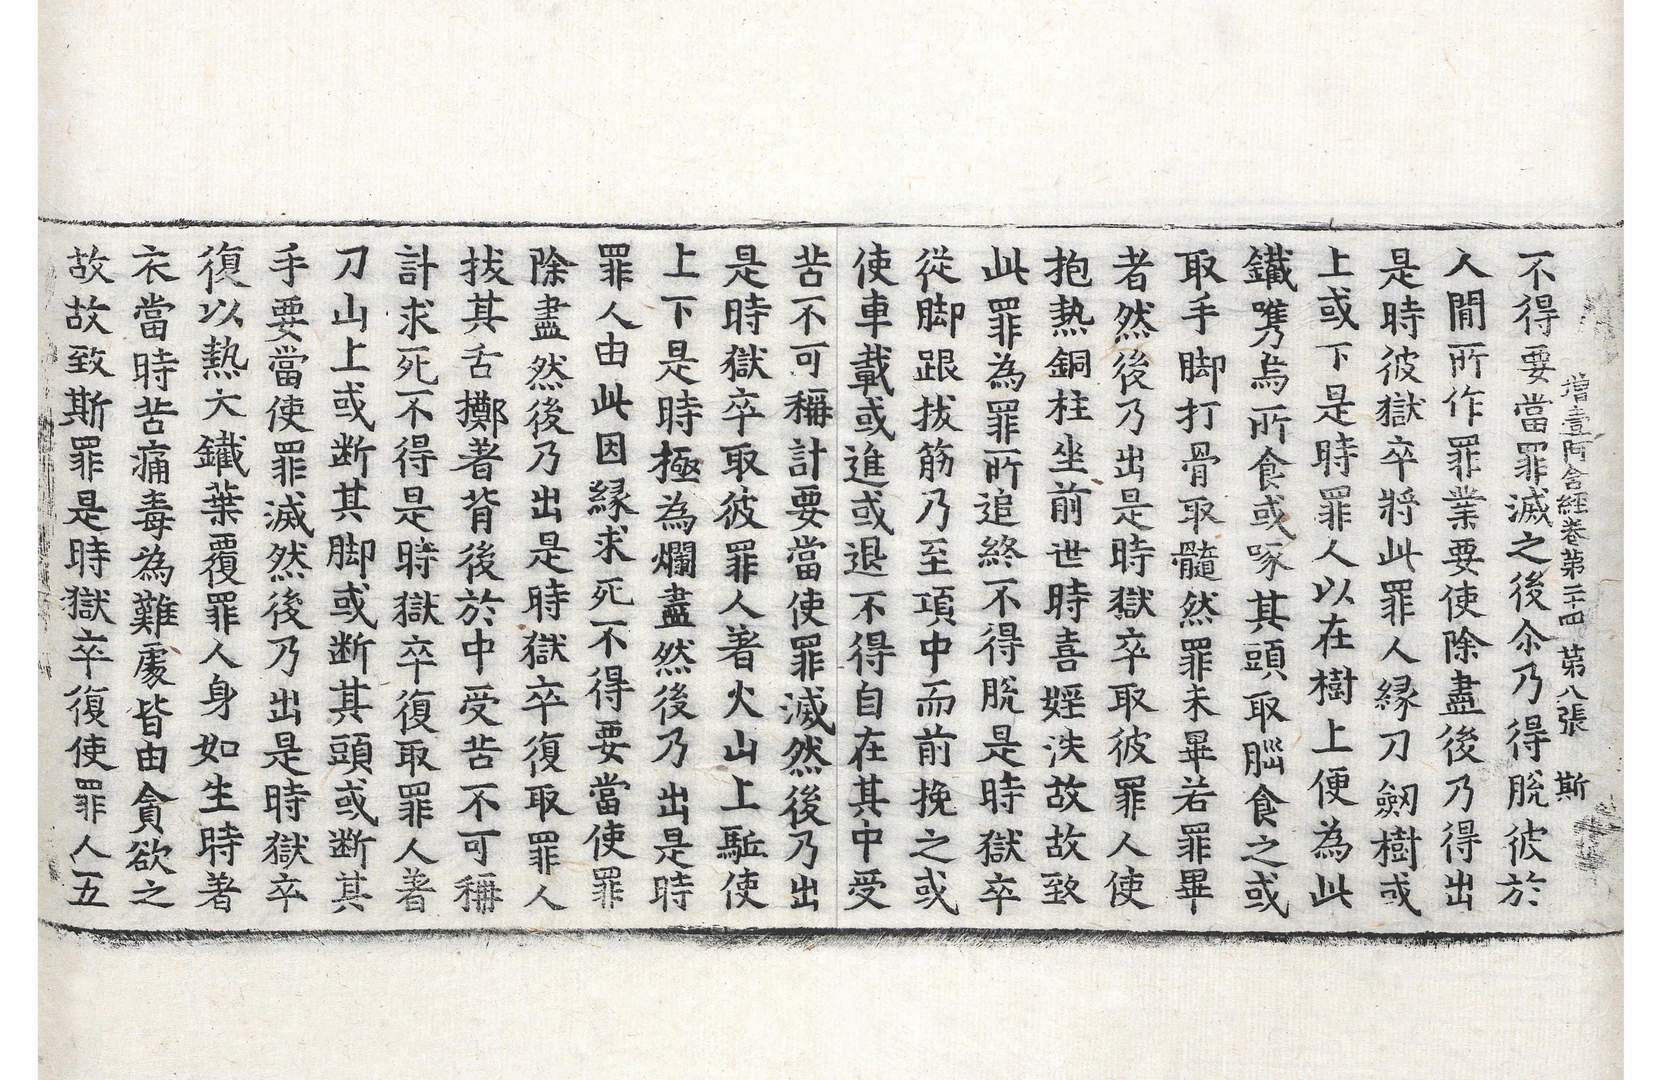 增壹阿含經卷第二十四　第八張　斯
不得要當罪滅之後尒乃得脫彼於
人閒所作罪業要使除盡後乃得出
是時彼獄卒將此罪人緣刀劒樹或
上或下是時罪人以在樹上便爲此
鐵㭰烏所食或啄其頭取腦食之或
取手脚打骨取髓然罪未畢若罪畢
者然後乃出是時獄卒取彼罪人使
抱熱銅柱坐前世時喜婬泆故故致
此罪爲罪所追終不得脫是時獄卒
從脚跟拔筋乃至項中而前挽之或
使車載或進或退不得自在其中受
苦不可稱計要當使罪滅然後乃出
是時獄卒取彼罪人著火山上駈使
上下是時極爲爛盡然後乃出是時
罪人由此因緣求死不得要當使罪
除盡然後乃出是時獄卒復取罪人
拔其舌擲著背後於中受苦不可稱
計求死不得是時獄卒復取罪人著
刀山上或断其脚或断其頭或断其
手要當使罪滅然後乃出是時獄卒
復以熱大鐵葉覆罪人身如生時著
衣當時苦痛毒爲難處皆由貪欲之
故故致斯罪是時獄卒復使罪人五